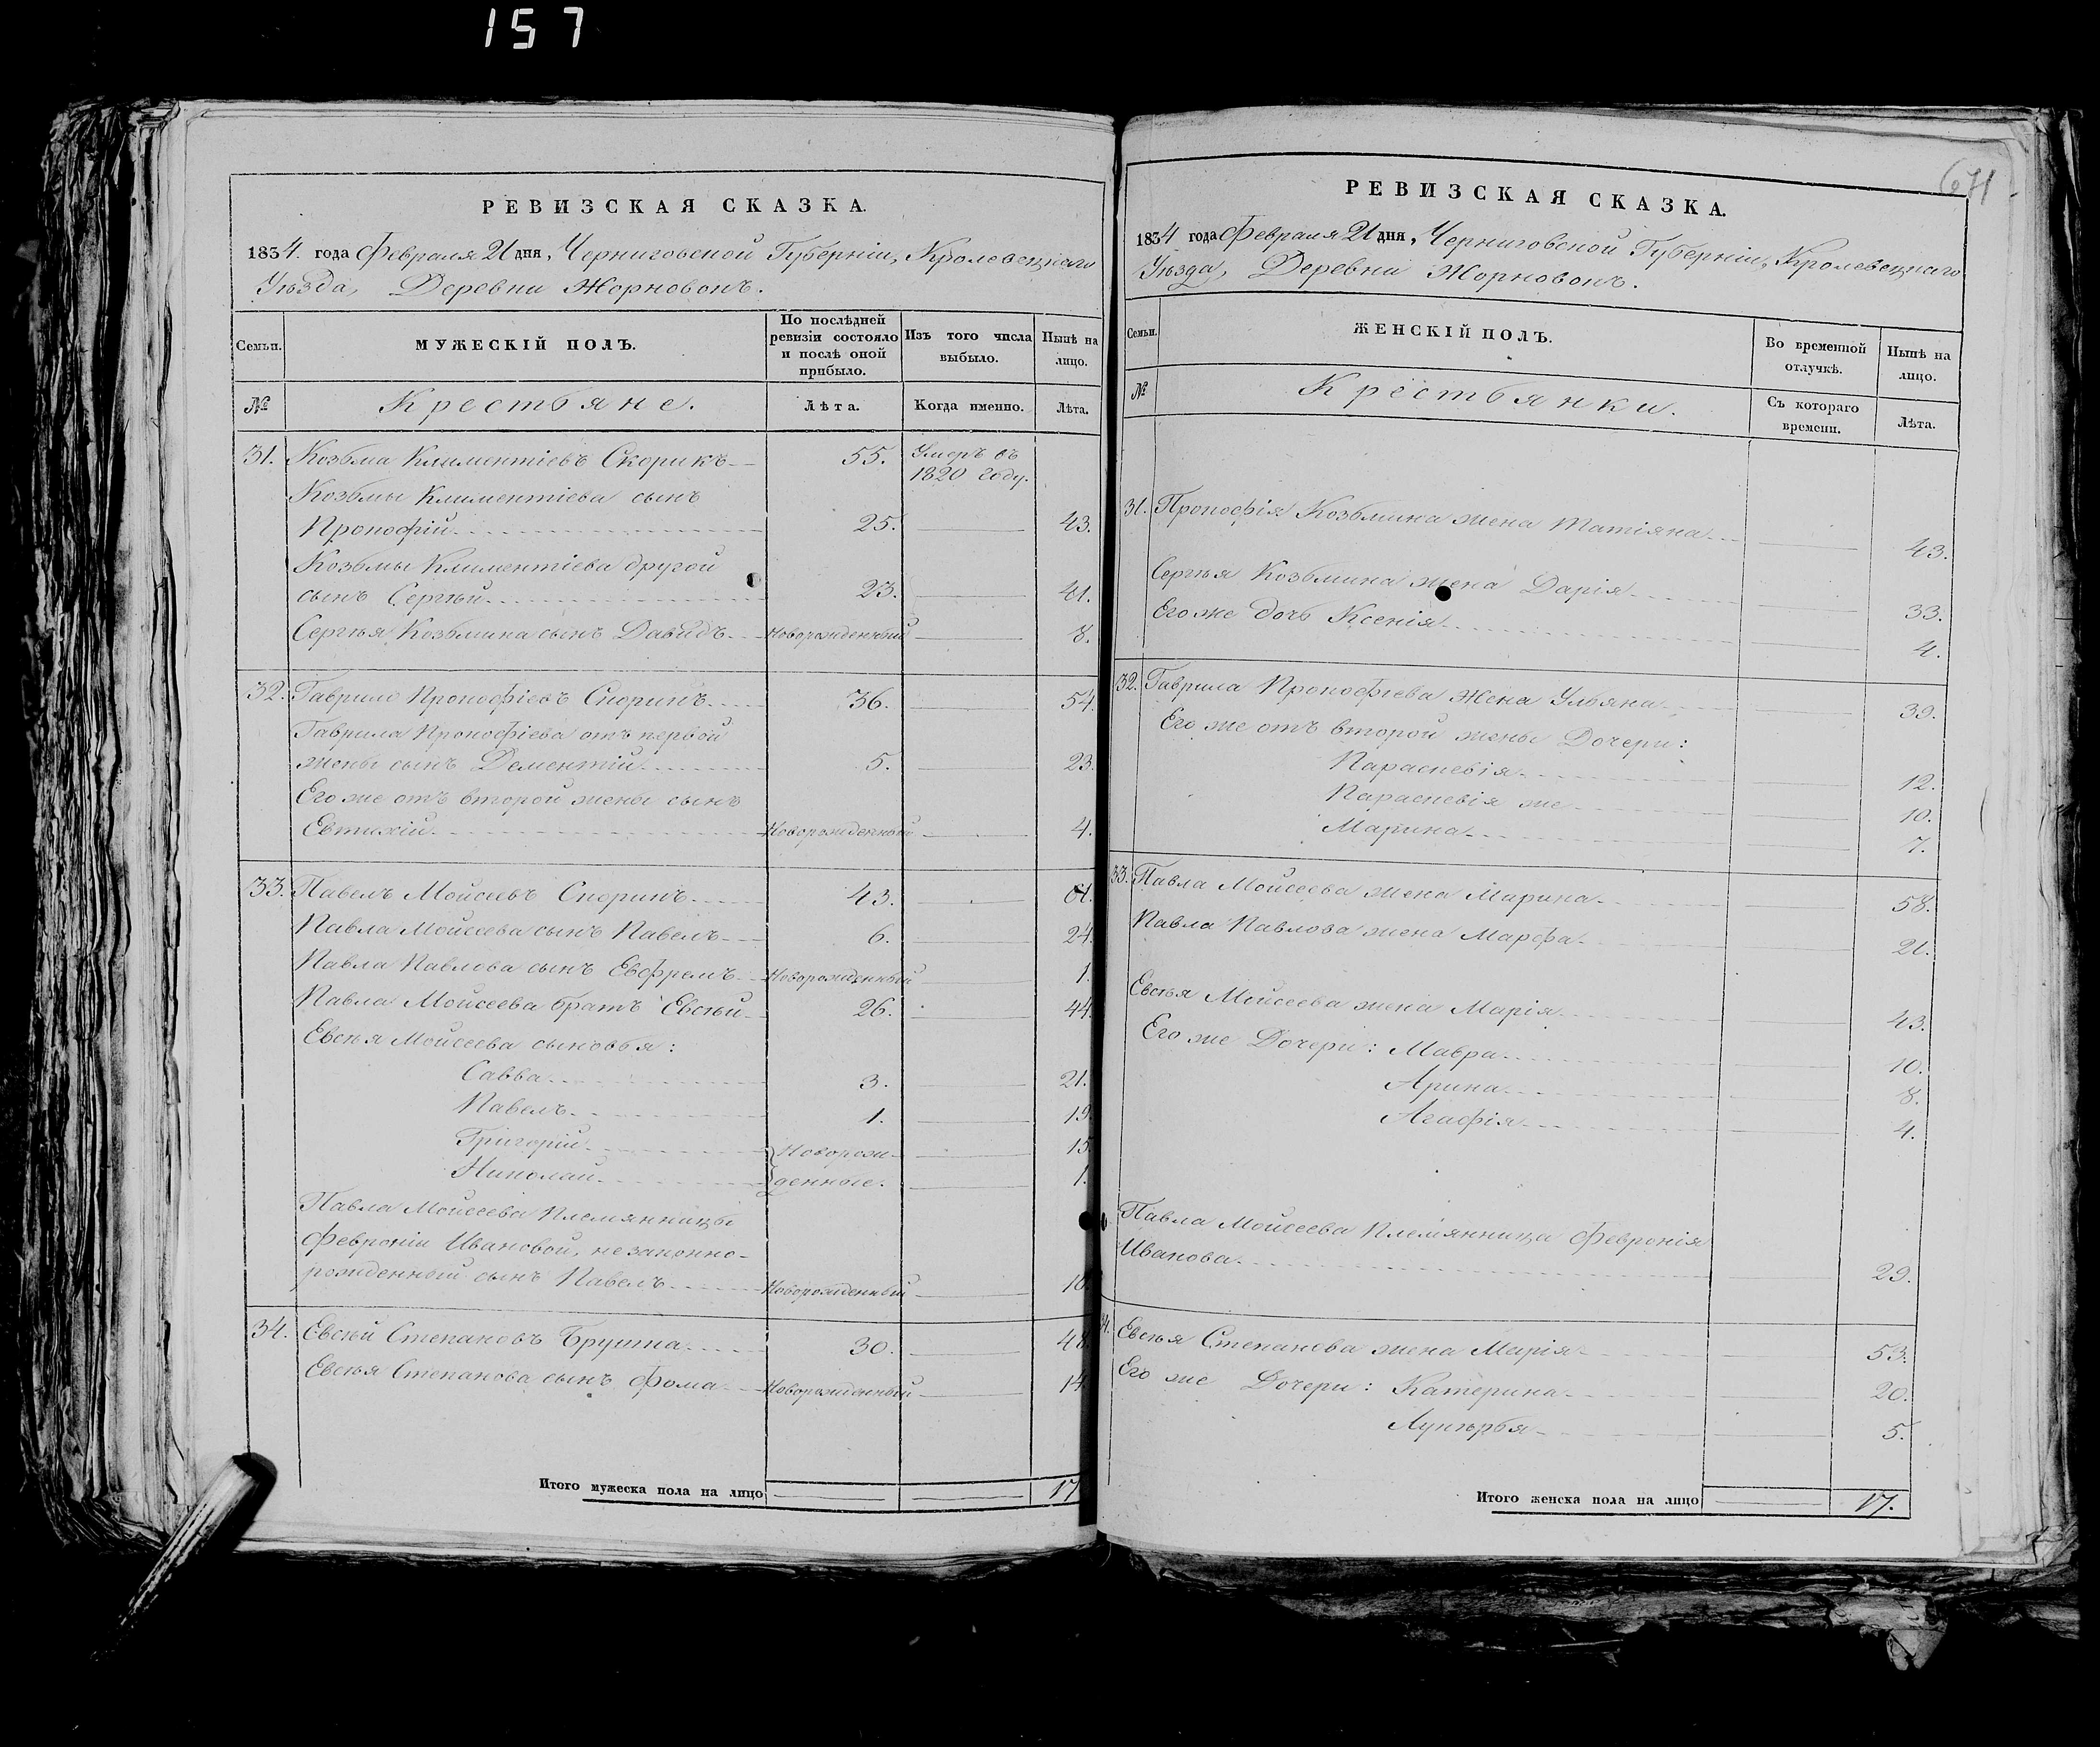 157
РЕВИЗСКАЯ СКАЗКА.
1834. года Февраля 21 дня, Черниговской Губерніи, Кролевецкаго
Уѣзда, Деревни Жорновокъ.
Семьи.
МУЖЕСКІЙ ПОЛЪ.
По послѣдней ревизіи состояло и послѣ оной прибыло.
Изъ того числа выбыло.
Нынѣ на лицо.
№
Крестьяне.
Лѣта.
Когда именно.
Лѣта.
31. Козьма Климентіевъ Скорикъ 55. Умеръ въ 1820 году.
Козьмы Климентіева сынъ
Прокофій 25. 43.
Козьмы Климентіева другой
сынъ Сергѣй 23. 41.
Сергѣя Козьмина сынъ Давидъ Новорожденный 8.
32. Гаврило Прокофіевъ Скорикъ 36. 54.
Гаврила Прокофіева отъ первой
жены сынъ Дементій 5. 23.
Его же отъ второй жены сынъ
Евтихій Новорожденный 4.
33. Павелъ Моисеевъ Скорикъ 43. 61.
Павла Моисеева сынъ Павелъ 6. 24.
Павла Павлова сынъ Евфремъ Новорожденный 1.
Павла Моисеева братъ Евсѣй 26. 44.
Евсѣя Моисеева сыновья:
Савва 3. 21.
Павелъ 1. 19
Григорій Новорож- 15
Николай денные. 1.
Павла Моисеева Племянницы
Февроніи Ивановой, незаконно-
рожденный сынъ Павелъ Новорожденный 10
34. Евсѣй Степановъ Брушма 30. 48
Евсѣя Степанова сынъ Фома Новорожденный 14
Итого мужеска пола на лицо 17
671
РЕВИЗСКАЯ СКАЗКА.
1834 года Февраля 21 дня, Черниговской Губерніи, Кролевецкаго
Уѣзда, Деревни Жорновокъ.
Семьи.
ЖЕНСКІЙ ПОЛЪ.
Во временной отлучкѣ.
Нынѣ на лицо.
№
Крестьянки.
Съ котораго времени.
Лѣта.
31. Прокофія Козьмина жена Татіяна 43.
Сергѣя Козьмина жена Дарія 33.
Его же дочь Ксенія 4.
32. Гаврила Прокофіева Жена Ульяна 39.
Его же отъ второй жены Дочери:
Параскевія 12.
Параскевія же 10.
Марина 7.
33. Павла Моисеева жена Марина 58.
Павла Павлова жена Марфа 21.
Евсѣя Моисеева жена Марія 43.
Его же Дочери: Мавра 10.
Арина 8.
Агафія 4.
Павла Моисеева Племянница Февронія
Иванова 29.
34. Евсѣя Степанова жена Марія 53.
Его же Дочери: Катерина 20.
Лукѣрья 5.
Итого женска пола на лицо 17.